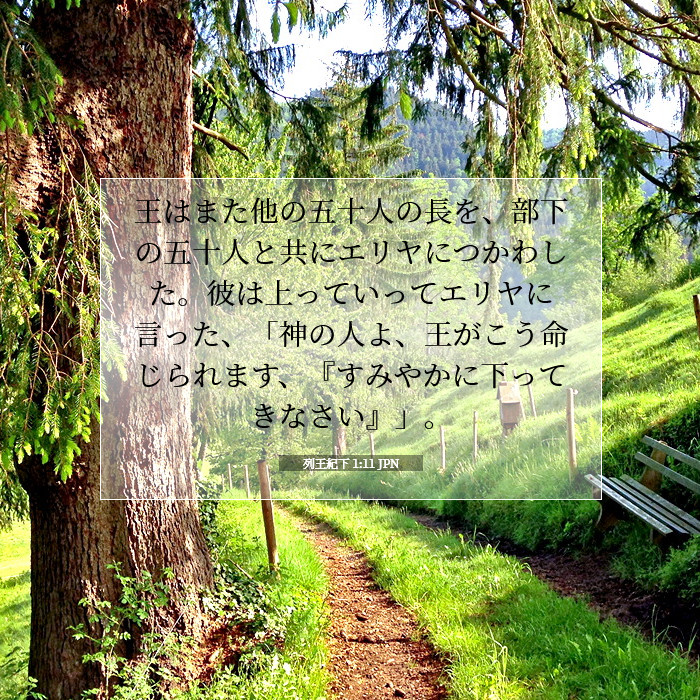 王はまた他の五十人の長を、部下
の五十人と共にエリヤにつかわし
た。彼は上っていってエリヤに
言った、「神の人よ、王がこう命
じられます、『すみやかに下って
きなさい』」。
列王紀下 1:11 JPN